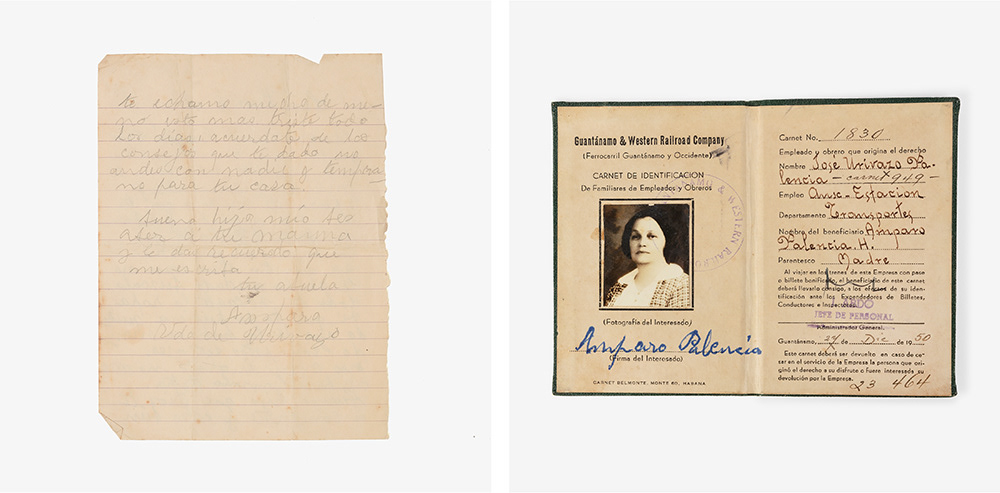 te echamo mucho de me-
no esto mas triste todo
los dias acuerdate de los
consejo que te dado no
andes con nadie y tempra
no para tu casa.
Bueno hijo mio
a tu mamma
y le das recuerdo que
me escriba
tu abuela
Amparo
Vda de Urivazo
Guantánamo & Western Railroad Company
(Ferrocarril Guantánamo y Occidente)
CARNET DE IDENTIFICACION
De Familiares de Empleados y Obreros
& WESTERN RAILRO
(Fotografía del Interesado)
Amparo Palencia
(Firma del Interesado)
CARNET BELMONTE, MONTE 60, HABANA
Carnet No. 1830
Empleado y obrero que origina el derecho
Nombre José Urivazo Pa-
lencia - carnet 949 -
Empleo Aux-Estacion
Departamento Transportes
Nombre del beneficiario Amparo
Palencia H.
Parentesco Madre
Al viajar en los trenes de esta Empresa con pase
o billete bonificado, el beneficiario de este carnet
deberá llevarlo consigo, a los efectos de su iden-
tificación ante los Expendedores de Billetes,
Conductores e Inspectores.
JEFE DE PERSONAL
Administrador General.
Guantánamo, 27 de Dic de 1950
Este carnet deberá ser devuelto en caso de ce-
sar en el servicio de la Empresa la persona que ori-
ginó el derecho a su disfrute o fuere interesada su
devolución por la Empresa.
23 464